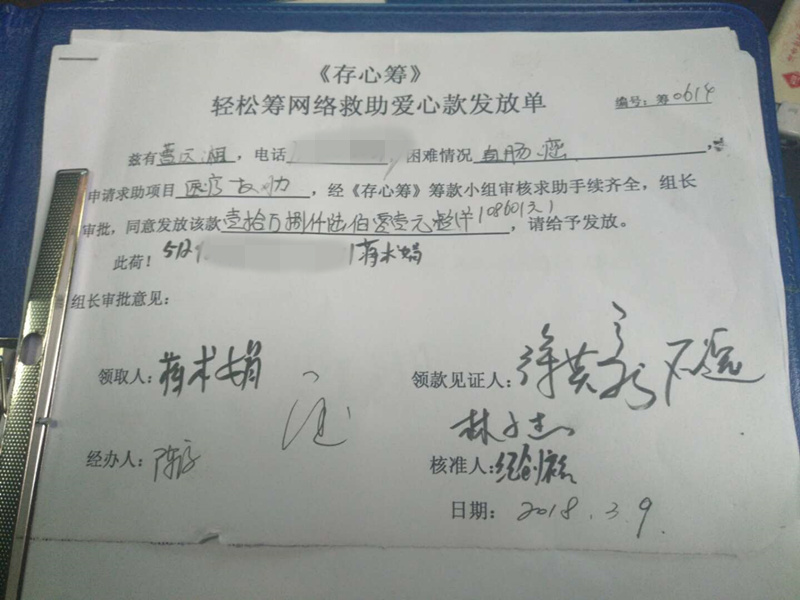 《存心筹》
轻松筹网络救助爱心款发放单
编号:筹0614
兹有 湘,电话 困难情况 直肠癌,
申请求助项目 医疗救助,经《存心筹》筹款小组审核求助手续齐全,组长
审批,同意发放该款壹拾万捌仟陆佰零壹元整(108601元),请给予发放。
此荷! 512 蒋木娟
组长审批意见:
领取人:蒋木娟 领款见证人:
林 杰
经办人:陈 核准人:
日期: 2018.3.9